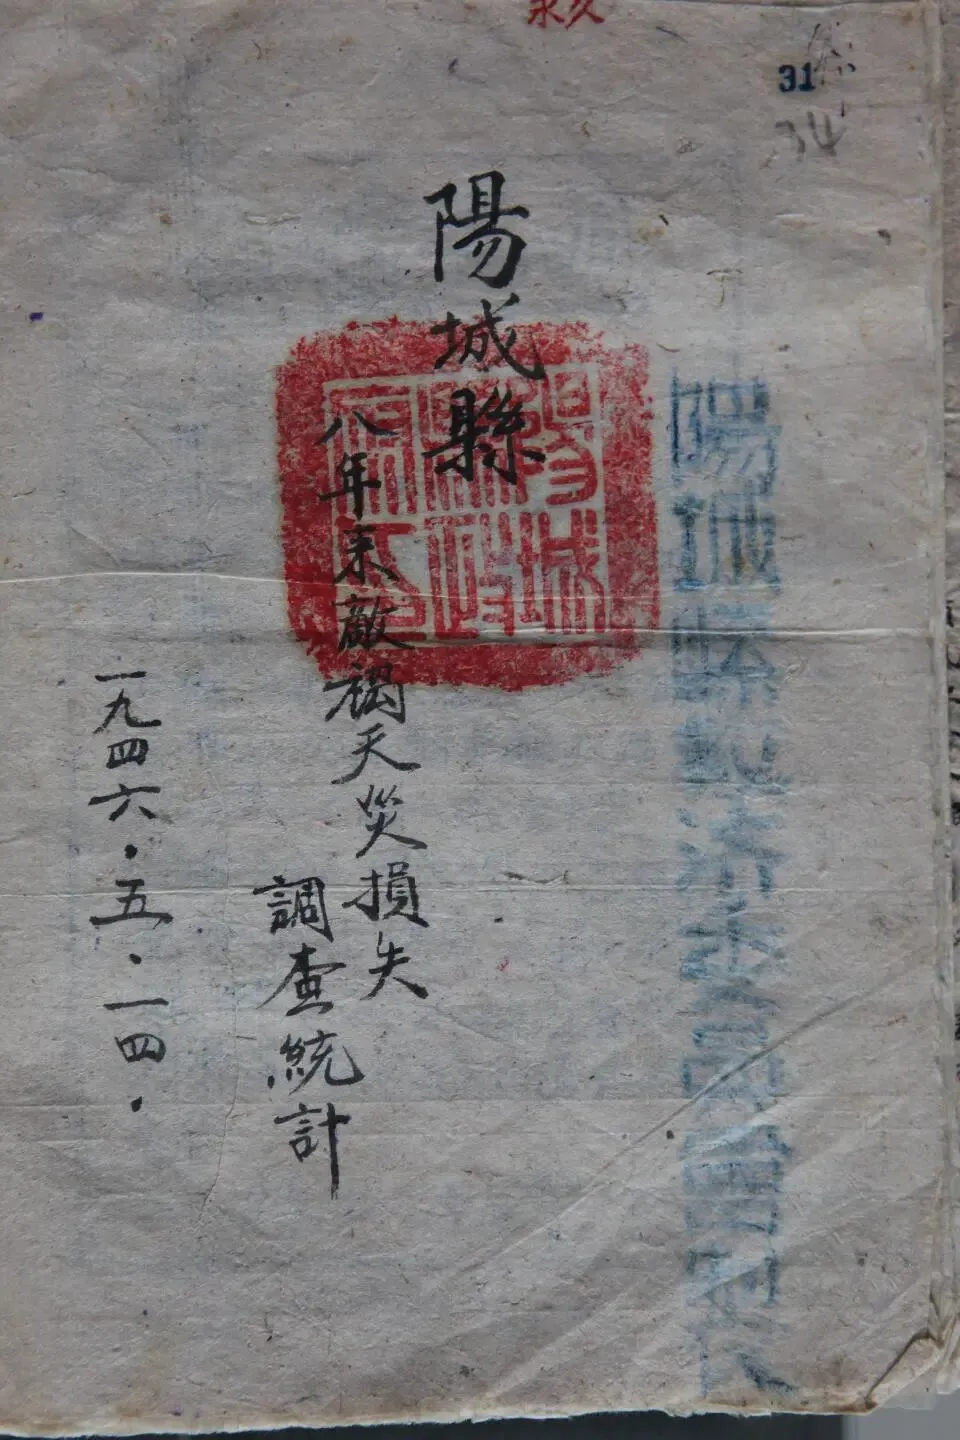 永久
31
34
陽城縣救济委員會
陽城縣政府印
陽城縣
八年来敵禍天災損失
調查統計
一九四六·五·一四·